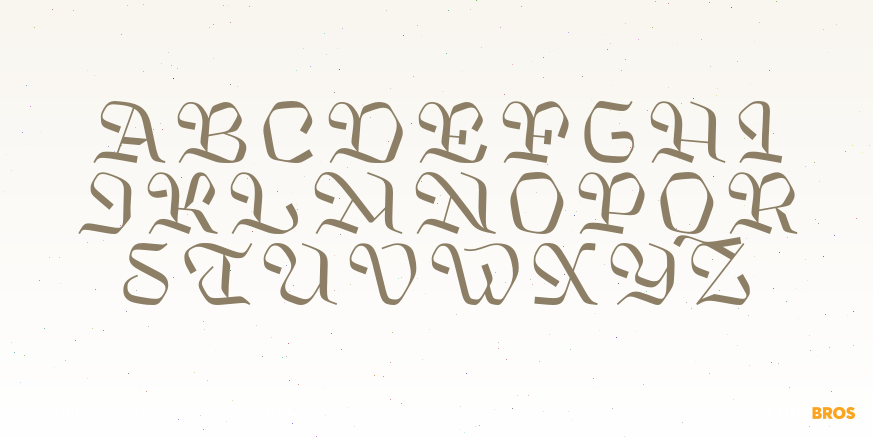 ABCDEFGHI
JKLMNOPQR
STUVWXYZ
BROS